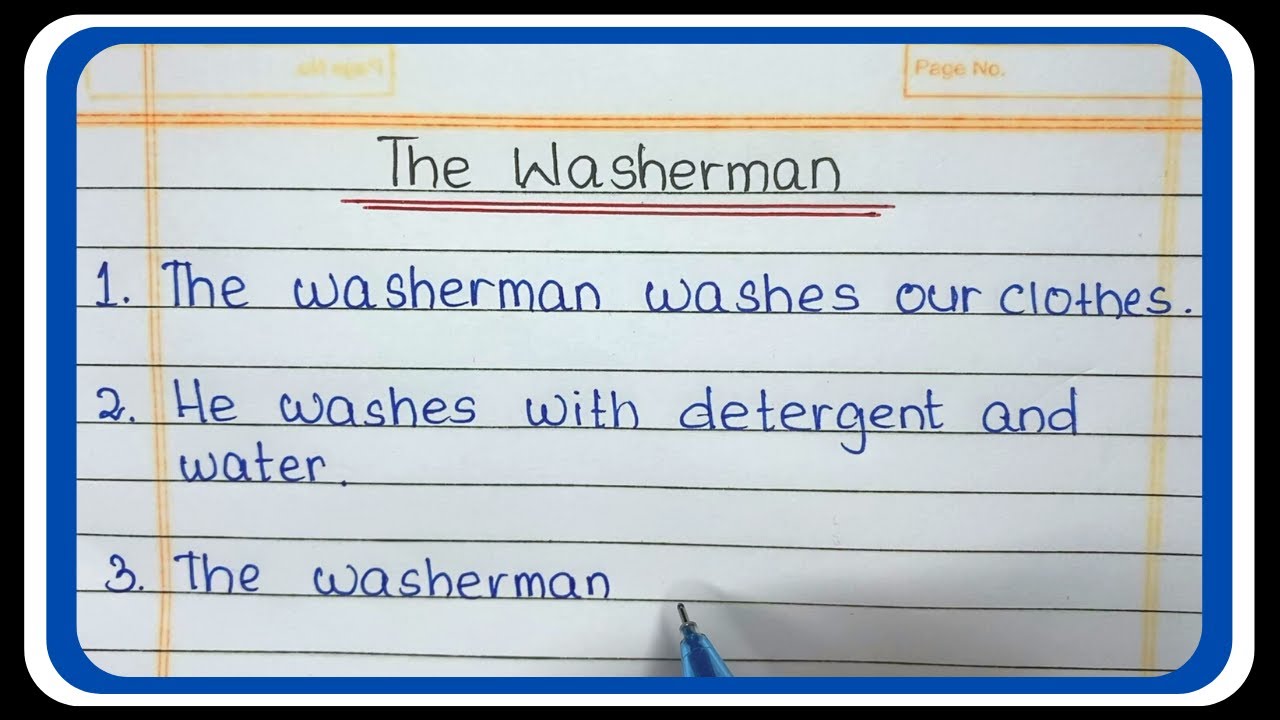 Page No.
The Washerman
1. The washerman washes our clothes.
2. He washes with detergent and
water.
3. The washerman